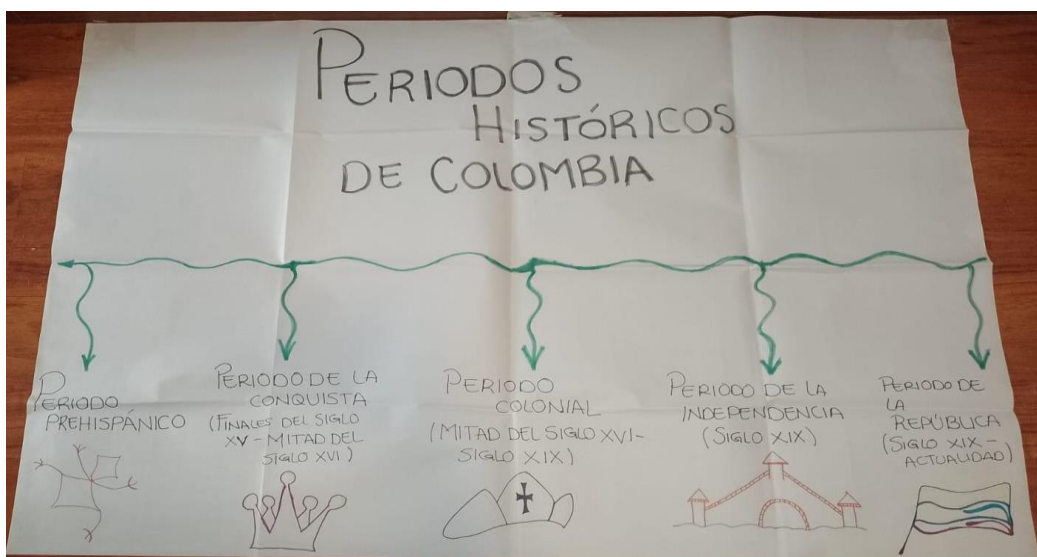 PERIODOS
HISTÓRICOS
DE COLOMBIA
PERIODO
PREHISPÁNICO
PERIODO DE LA
CONQUISTA
(FINALES DEL SIGLO
XV - MITAD DEL
SIGLO XVI)
PERIODO
COLONIAL
(MITAD DEL SIGLO XVI-
SIGLO XIX)
PERIODO DE LA
INDEPENDENCIA
(SIGLO XIX)
PERIODO DE
LA
REPÚBLICA
(SIGLO XIX-
ACTUALIDAD)